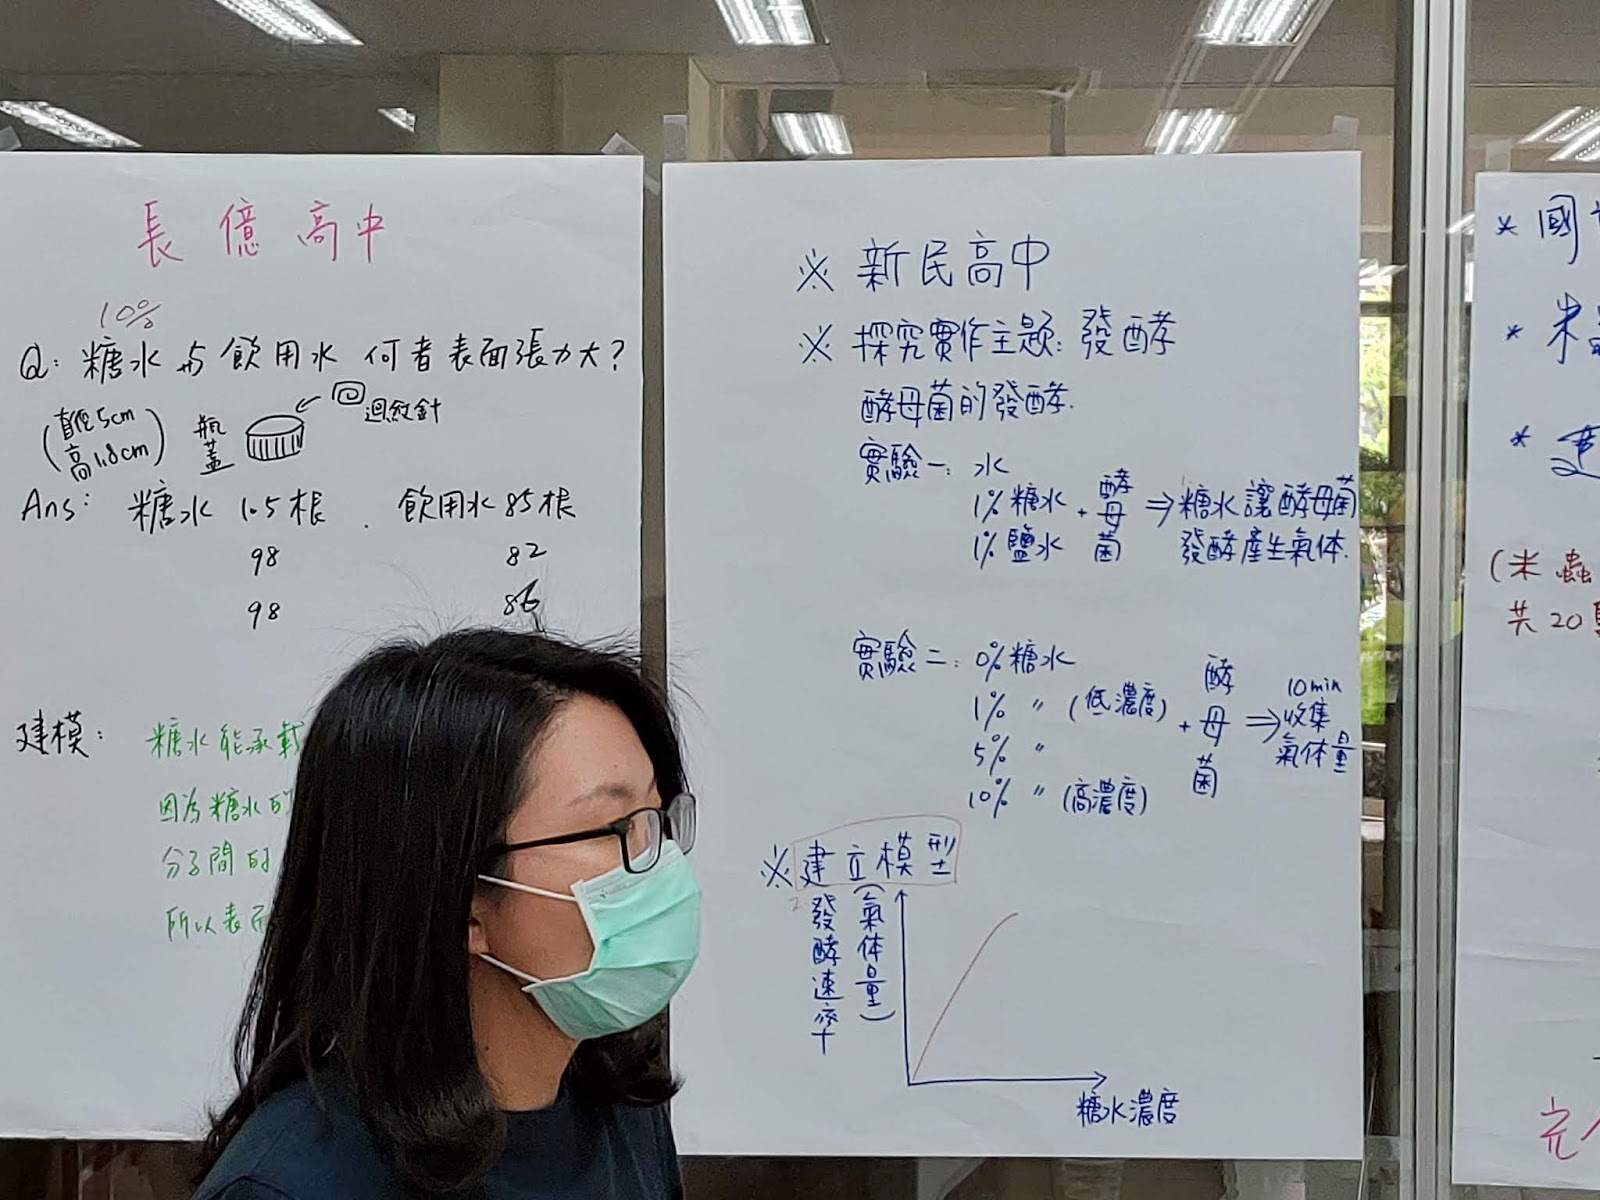 長億高中
10%
Q: 糖水与飲用水 何者表面張力大?
(直徑5cm
高1.8cm)
瓶蓋
迴紋針
Ans: 糖水 105根 . 飲用水 85根
98 82
98 86
建模: 糖水能承載
因為糖水的
分子間的
所以表面
※ 新民高中
※ 探究實作主題: 發酵
酵母菌的發酵.
實驗一: 水
1% 糖水 + 酵母菌 ⇒ 糖水讓酵母菌
1% 鹽水 發酵產生氣体.
實驗二: 0% 糖水
1% 〃 (低濃度) + 酵母菌 ⇒ 10min
5% 〃 收集
10% 〃 (高濃度) 氣体量
※建立模型
發酵速率
(氣体量)
糖水濃度
* 國
* 米
* 建
(米蟲
共20